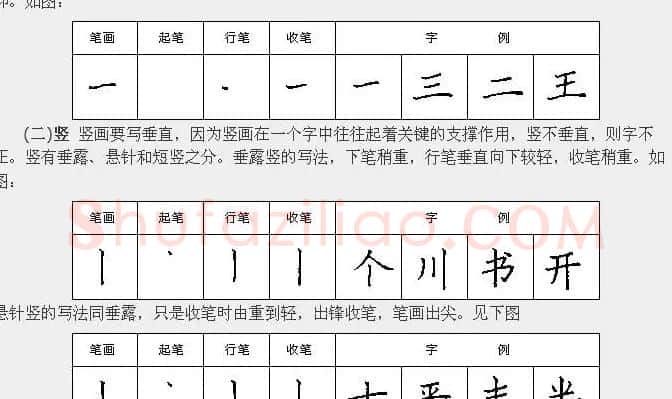 。如图：
笔画 起笔 行笔 收笔 字 例
一 一 一 三 二 王
(二)竖 竖画要写垂直，因为竖画在一个字中往往起着关键的支撑作用，竖不垂直，则字不
正。竖有垂露、悬针和短竖之分。垂露竖的写法，下笔稍重，行笔垂直向下较轻，收笔稍重。如
图：
Shufaziliao.COM
笔画 起笔 行笔 收笔 字 例
丨 丶 丨 丨 个 川 书 开
悬针竖的写法同垂露，只是收笔时由重到轻，出锋收笔，笔画出尖。见下图
笔画 起笔 行笔 收笔 字 例